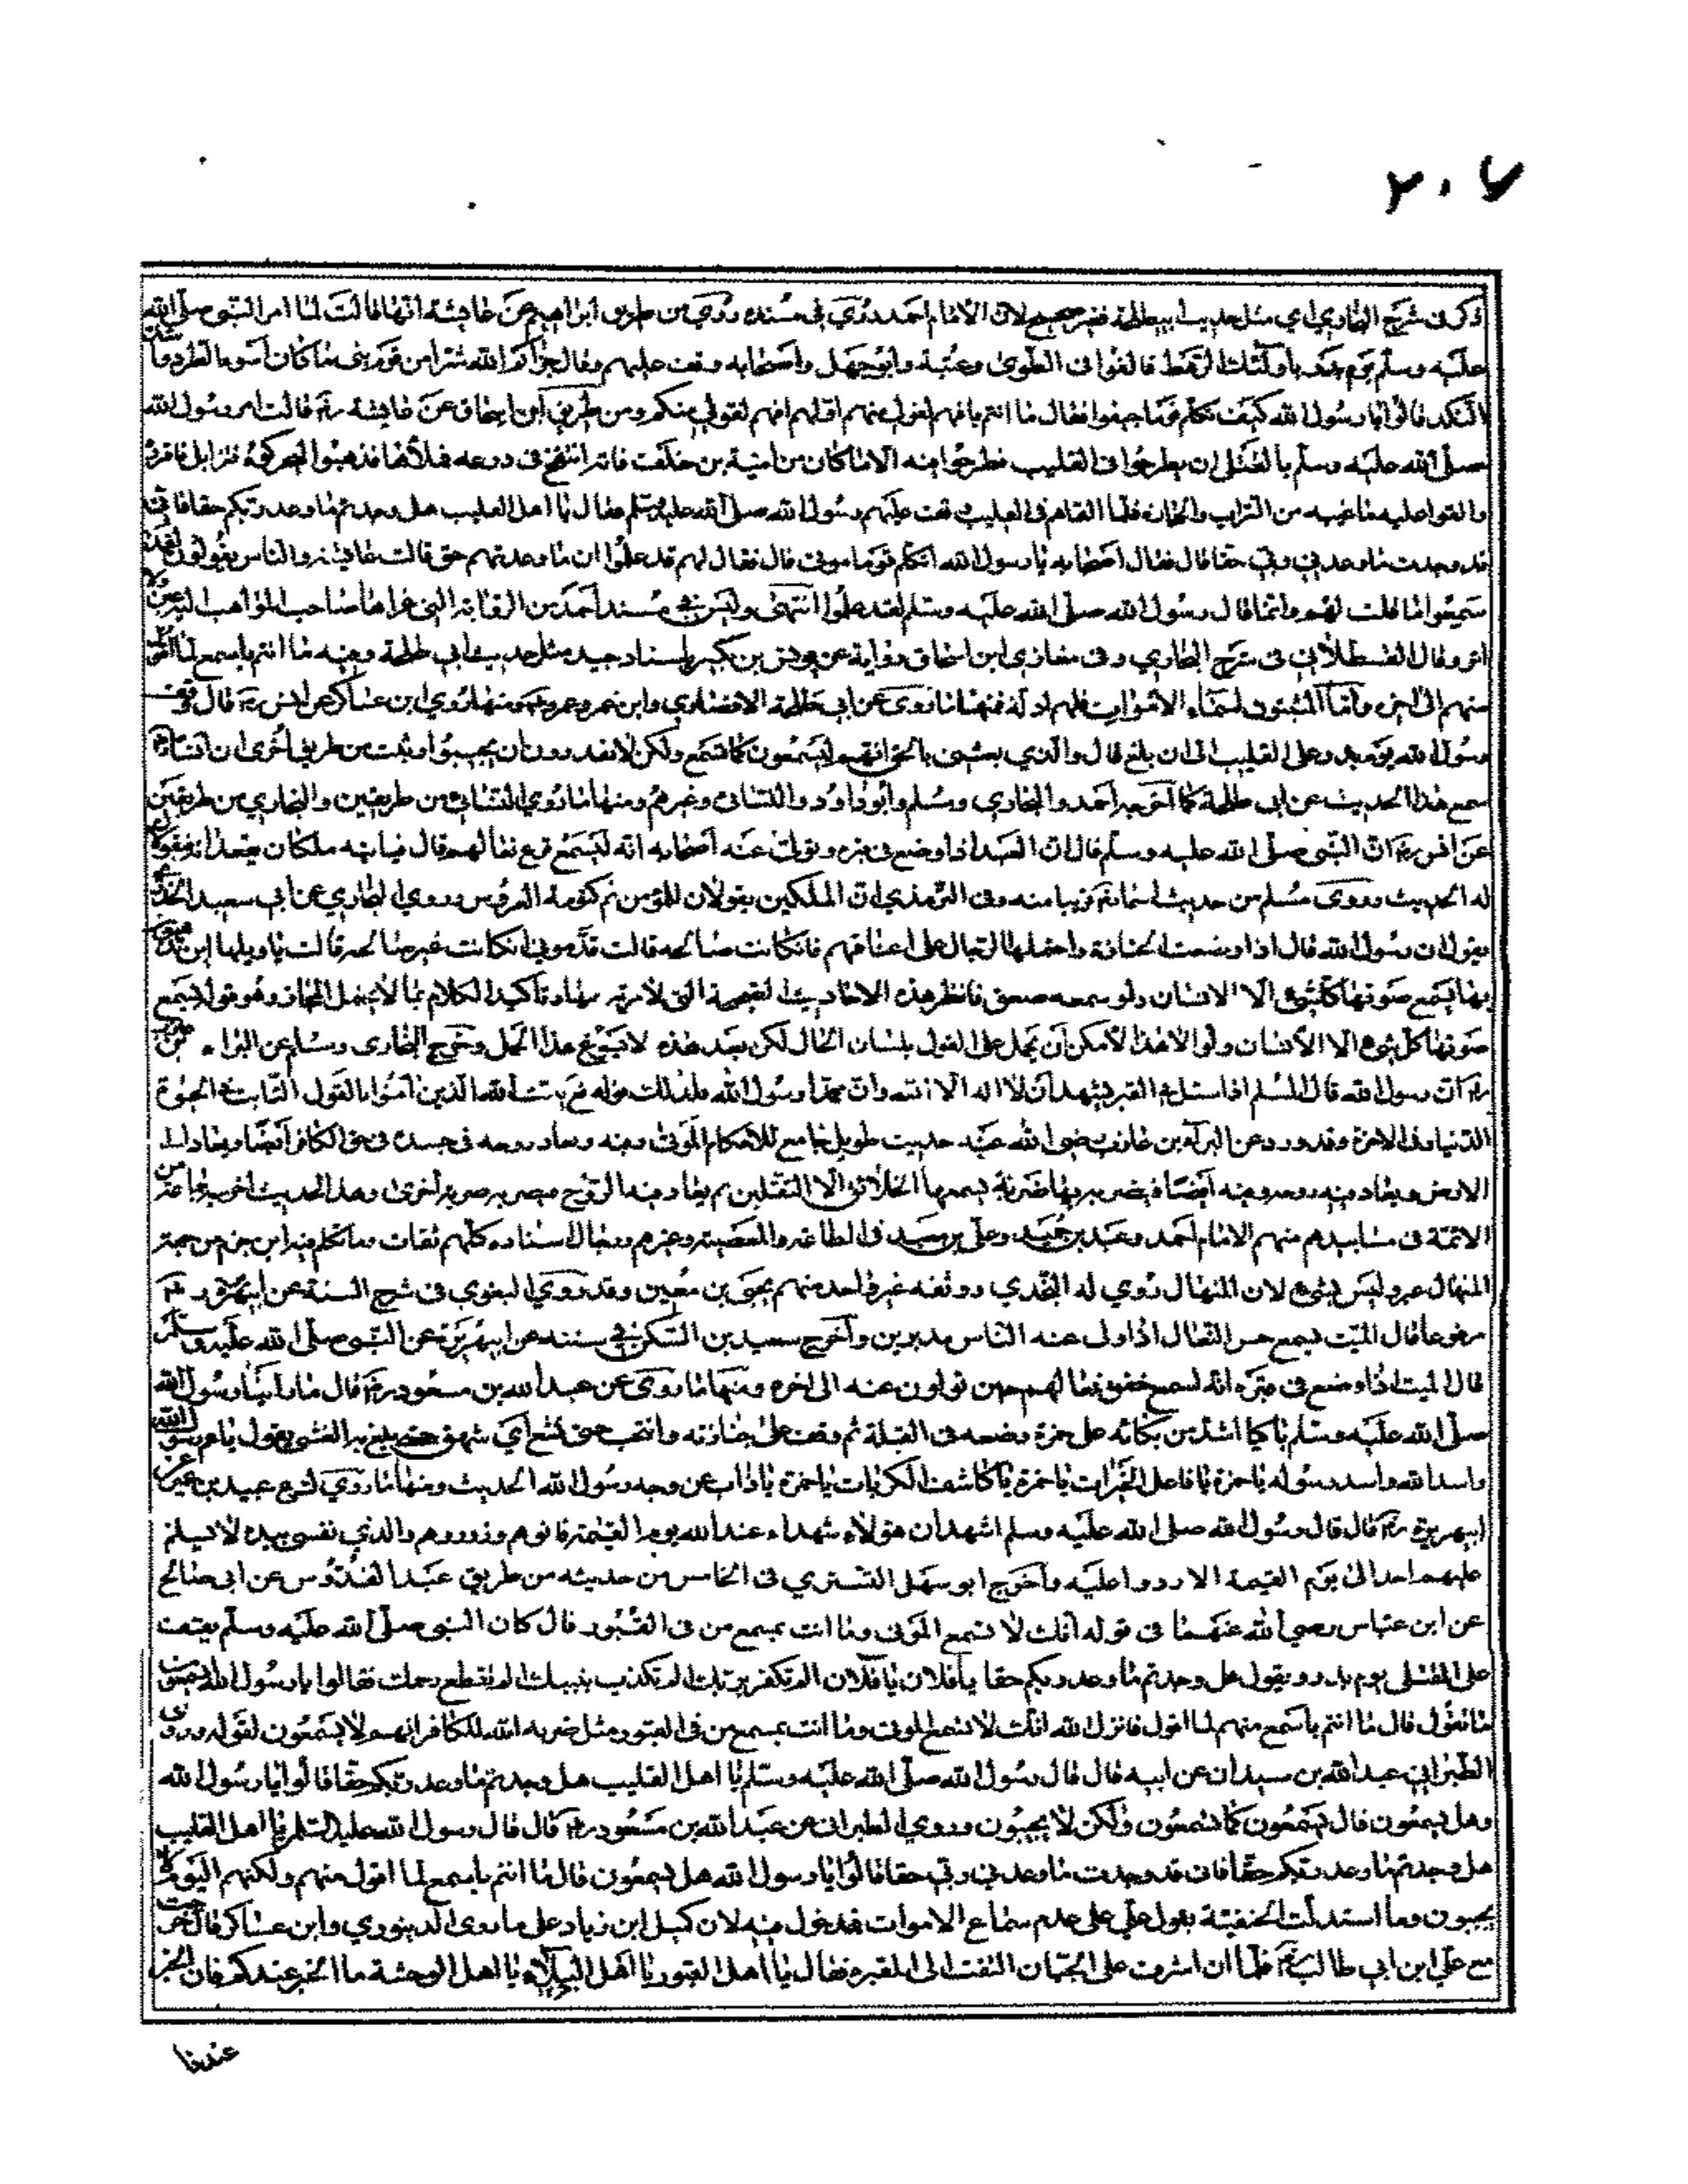 ٢٠٧
ذكر في شرح البخاري اي مثل حديث ابيطلحة فغير صحيح لان الامام احمد روى في مسنده روي من طريق ابراهيم عن عائشة انها قالت لما امر النبي صلى الله
عليه وسلم يوم بدر باولئك الرهط فالقوا في الطوى وعتبة وابو جهل واصحابه وقف عليهم وقال جزاكم الله شرا من قوم نبي ما كان اسوء الطرد وأشد
التكذيب قالوا يا رسول الله كيف تكلم قوما جيفوا فقال ما انتم بافهم لقولي منهم او لهم افهم لقولي منكم ومن طريق ابن اسحاق عن عائشة رض قالت امر رسول الله
صلى الله عليه وسلم بالقتلى ان يطرحوا في القليب فطرحوا فيه الا ما كان من امية بن خلف فانه انتفخ في درعه فملأها فذهبوا ليحركوه فتزايل فاقروه
والقوا عليه ما غيبه من التراب والحجارة فلما القاهم في القليب وقف عليهم رسول الله صلى الله عليه وسلم فقال يا اهل القليب هل وجدتم ما وعد ربكم حقا فاني
قد وجدت ما وعدني ربي حقا قال فقال اصحابه يا رسول الله اتكلم قوما موتى قال فقال لهم قد علموا ان ما وعدتهم حق قالت عائشة والناس يقولون لقد
سمعوا ما قلت لهم وانما قال رسول الله صلى الله عليه وسلم لقد علموا انتهى وليس في مسند احمد من الرواية التي عزاها صاحب المواهب اليه عين ولا
اثر وقال القسطلاني في شرح البخاري وفي مغازي ابن اسحاق رواية عن يونس بن بكير باسناد جيد مثل حديث ابي طلحة وفيه ما انتم باسمع لما اقول
منهم الى اخره واما المثبتون لسماع الاموات فلهم ادلة فمنها ما روى عن ابي طلحة الانصاري وابن عمر وعمر وغيرهم ومنها ما روى ابن عساكر عن انس رض قال وقف
رسول الله يوم بدر على القليب الى ان بلغ قال والذي بعثني بالحق انهم ليسمعون كما تسمع ولكن لا يقدرون ان يجيبوا وثبت من طريق اخرى ان انسا رض
سمع هذا الحديث عن ابي طلحة كما اخرجه احمد والبخاري ومسلم وابو داود والنسائي وغيرهم ومنها ما روى النسائي من طريقين والبخاري من طريقين
عن انس رض ان النبي صلى الله عليه وسلم قال ان العبد اذا وضع في قبره وتولى عنه اصحابه انه ليسمع قرع نعالهم قال فياتيه ملكان فيقعدانه فيقولان
له الحديث وروى مسلم من حديث اسماء نحو قريبا منه وفي الترمذي ان الملكين يقولان للمؤمن نم كنومة العروس وروي البخاري عن ابي سعيد الخدري
يقول ان رسول الله قال اذا وضعت الجنازة واحتملها الرجال على اعناقهم فان كانت صالحة قالت قدموني وان كانت غير صالحة قالت يا ويلها اين تذهبون
بها يسمع صوتها كل شيء الا الانسان ولو سمعه صعق فانظر هذه الاحاديث الصحيحة التي لا مرية فيها وتاكيد الكلام بما لا يحتمل المجاز وهو قوله يسمع
صوتها كل شيء الا الانسان ولولا هذا لامكن ان يحمل على القول بلسان الحال لكن بعد هذه لا يسوغ هذا الحمل وخرج البخاري ومسلم عن البراء
رض ان رسول الله قال المسلم اذا سئل في القبر يشهد ان لا اله الا الله وان محمدا رسول الله فذلك قوله يثبت الله الذين آمنوا بالقول الثابت في الحيوة
الدنيا وفي الاخرة وقد ورد عن البراء بن عازب رضي الله عنه حديث طويل جامع لاحكام الموتى وفيه وتعاد روحه في جسده في حق الكافر ايضا ويعاد الى
الارض ويعاد فيه روحه وفيه ايضا فيضربه بها ضربة يسمعها الخلائق الا الثقلين ثم يعاد فيه الروح فيضربه ضربة اخرى وهذا الحديث اخرجه جماعة من
الائمة في مسانيدهم منهم الامام احمد وعبد بن حميد وعلي بن معبد في الطاعة والمعصية وغيرهم ورجال اسناده كلهم ثقات وما تكلم فيه ابن حزم من جهة
المنهال بن عمرو ليس بشيء لان المنهال روي له البخاري ووثقه غير واحد منهم يحيى بن معين وقد روي البغوي في شرح السنة عن ابيهريرة رض
مرفوعا قال الميت يسمع حس النعال اذا ولى عنه الناس مدبرين واخرج سعيد بن السكن في سننه عن ابيهريرة عن النبي صلى الله عليه وسلم
قال الميت اذا وضع في قبره انه ليسمع خفق نعالهم حين يولون عنه الى اخره ومنها ما روى عن عبد الله بن مسعود رض قال ما راينا رسول الله
صلى الله عليه وسلم باكيا اشد من بكائه على حمزة وضعه في القبلة ثم وقف على جنازته وانتحب حتى نشغ اي شهق حتى بلغ به الغشي يقول يا عم رسول الله
واسد الله واسد رسوله يا حمزة يا فاعل الخيرات يا حمزة يا كاشف الكربات يا حمزة يا ذاب عن وجه رسول الله الحديث ومنها ما روى عبيد بن عمير عن
ابيهريرة رض قال قال رسول الله صلى الله عليه وسلم اشهد ان هؤلاء شهداء عند الله يوم القيمة فاتوهم وزوروهم والذي نفسي بيده لا يسلم
عليهم احد الى يوم القيمة الا ردوا عليه واخرج ابو سهل التستري في الخامس من حديثه من طريق عبد القدوس عن ابي صالح
عن ابن عباس رضي الله عنهما في قوله انك لا تسمع الموتى وما انت بمسمع من في القبور قال كان النبي صلى الله عليه وسلم يقف
على القتلى يوم بدر ويقول هل وجدتم ما وعد ربكم حقا يا فلان يا فلان الم تكفر بربك الم تكذب بنبيك الم تقطع رحمك فقالوا يا رسول الله ايسمعون
ما تقول قال ما انتم باسمع منهم لما اقول فانزل الله انك لا تسمع الموتى وما انت بمسمع من في القبور مثل ضربه الله للكافر انهم لا يسمعون لقوله وروى
الطبراني عبد الله بن سيدان عن ابيه قال قال رسول الله صلى الله عليه وسلم يا اهل القليب هل وجدتم ما وعد ربكم حقا قالوا يا رسول الله
وهل يسمعون قال يسمعون كما تسمعون ولكن لا يجيبون وروي الطبراني عن عبد الله بن مسعود رض قال قال رسول الله عليه السلم يا اهل القليب
هل وجدتم ما وعد ربكم حقا فاني قد وجدت ما وعدني ربي حقا قالوا يا رسول الله هل يسمعون قال ما انتم باسمع لما اقول منهم ولكنهم اليوم لا
يجيبون وما استدلت الحنفية بقول علي على عدم سماع الاموات فدخول فيه لان كميل ابن زياد على ما روى الدينوري وابن عساكر قال خرجت
مع علي ابن ابي طالب رض فلما ان اشرف على الجبان التفت الى المقبرة فقال يا اهل القبور يا اهل البلاء يا اهل الوحشة ما الخبر عندكم فان الخبر
عندنا